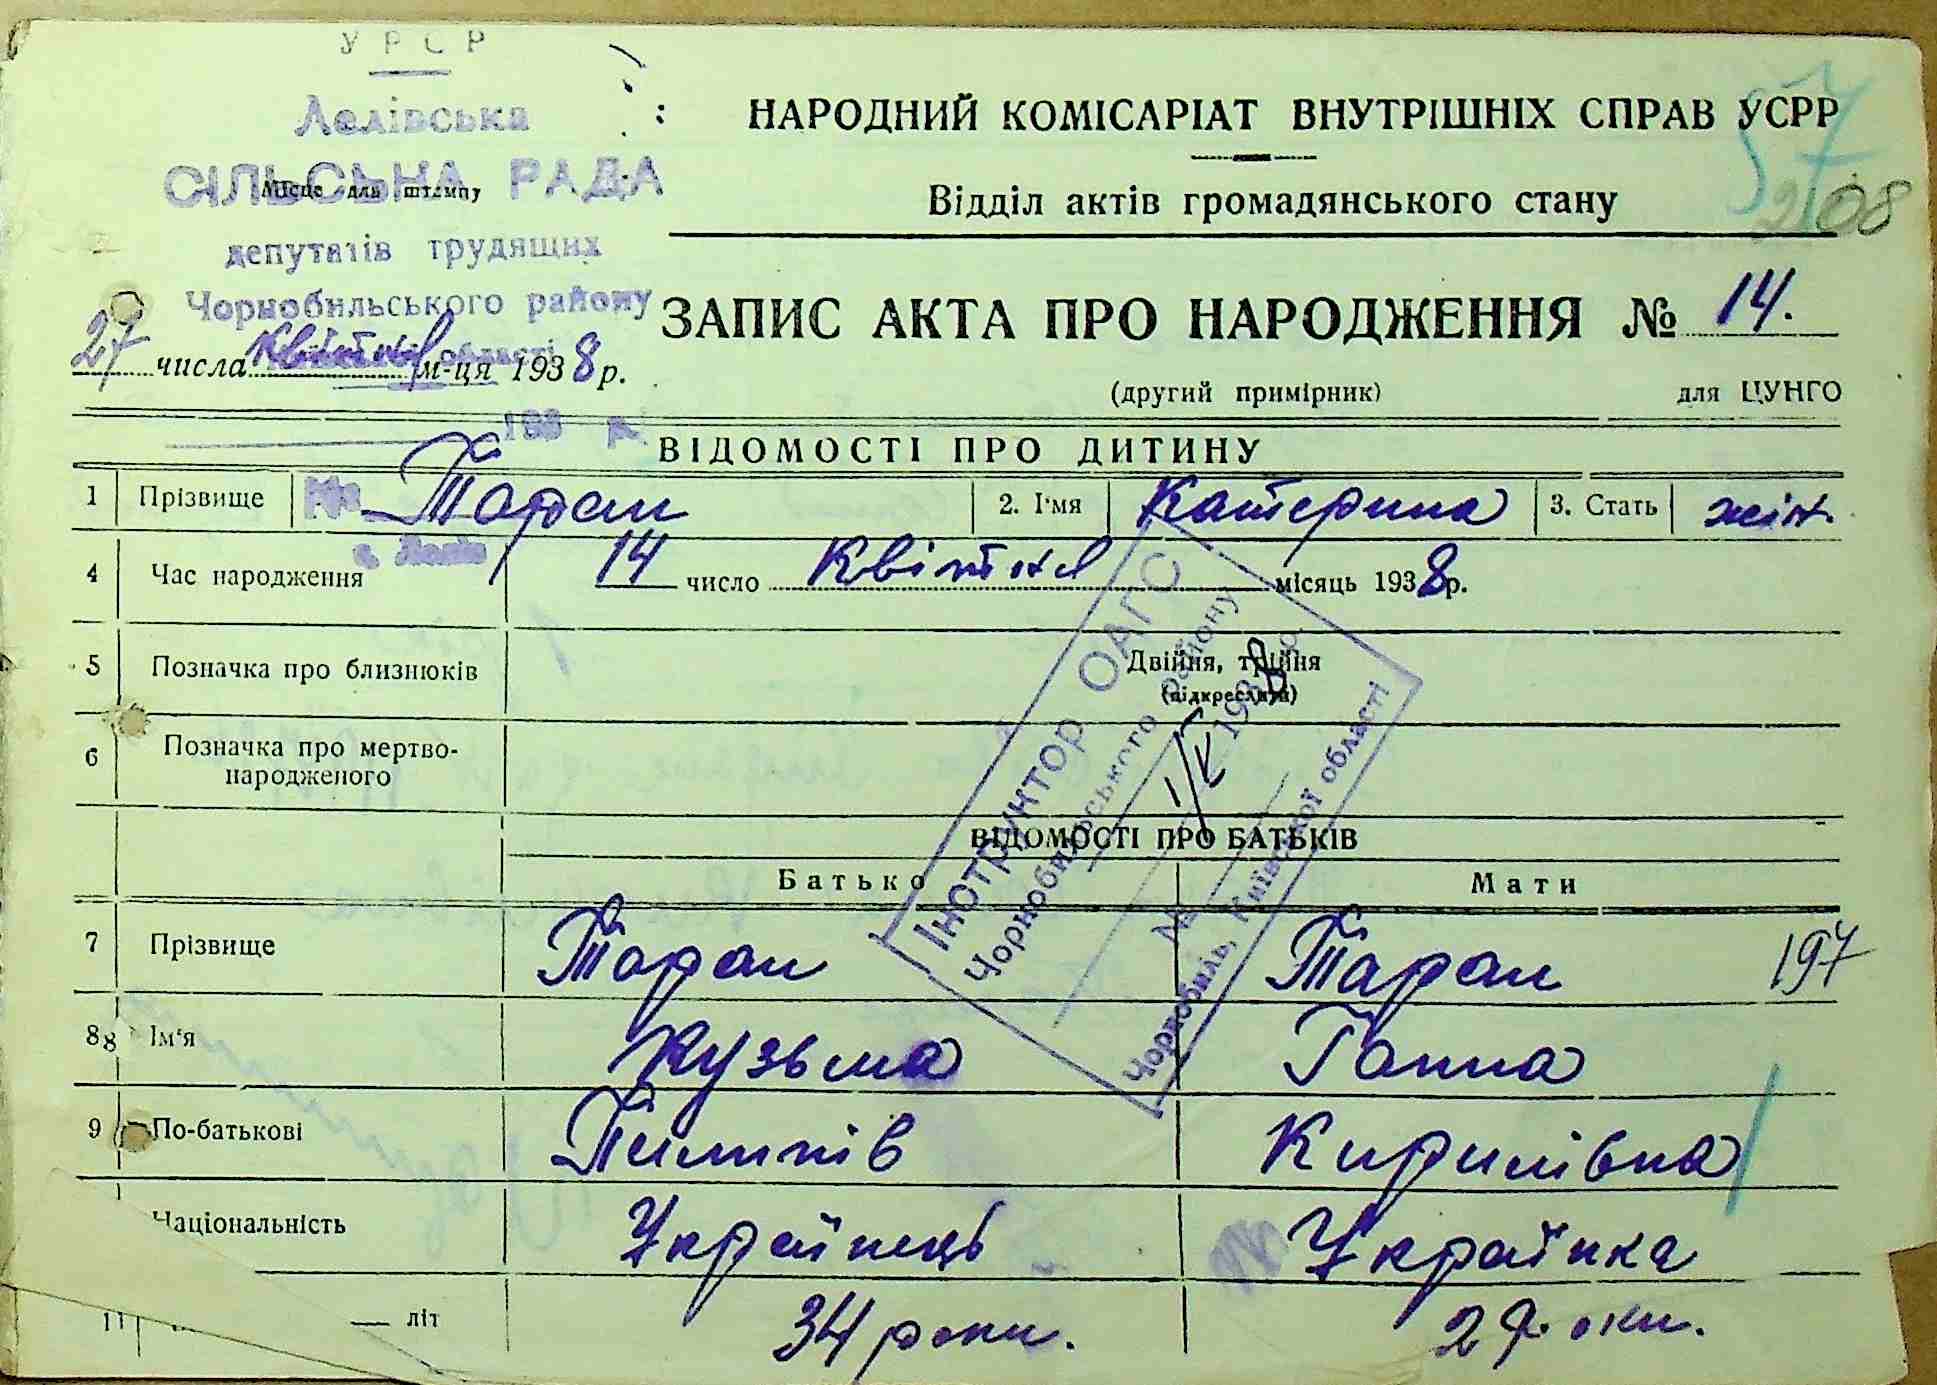 УРСР
Лелівська
СІЛЬСЬКА РАДА
Місце для штампу
депутатів трудящих
Чорнобильського району
області
27 числа квітня м-ця 1938 р.
193 р.
НАРОДНИЙ КОМІСАРІАТ ВНУТРІШНІХ СПРАВ УСРР
57
Відділ актів громадянського стану
208
ЗАПИС АКТА ПРО НАРОДЖЕННЯ № 14.
(другий примірник) для ЦУНГО
ВІДОМОСТІ ПРО ДИТИНУ
1 Прізвище № Таран 2. І'мя Катерина 3. Стать жін.
с. Лелів
4 Час народження 14 число Квітня місяць 1938 р.
5 Позначка про близнюків Двійня, трійня
(підкреслити)
6 Позначка про мертво-
народженого
Інструктор ОАГС
Чорнобильського району
1/V 1938 р.
№
Чорнобиль, Київської області
ВІДОМОСТІ ПРО БАТЬКІВ
Батько Мати
7 Прізвище Таран Таран 197
8 8 Ім'я Кузьма Ганна
9 По-батькові Пилипів Кирилівна
Національність Українець Українка
11 літ 34 роки. 29 роки.